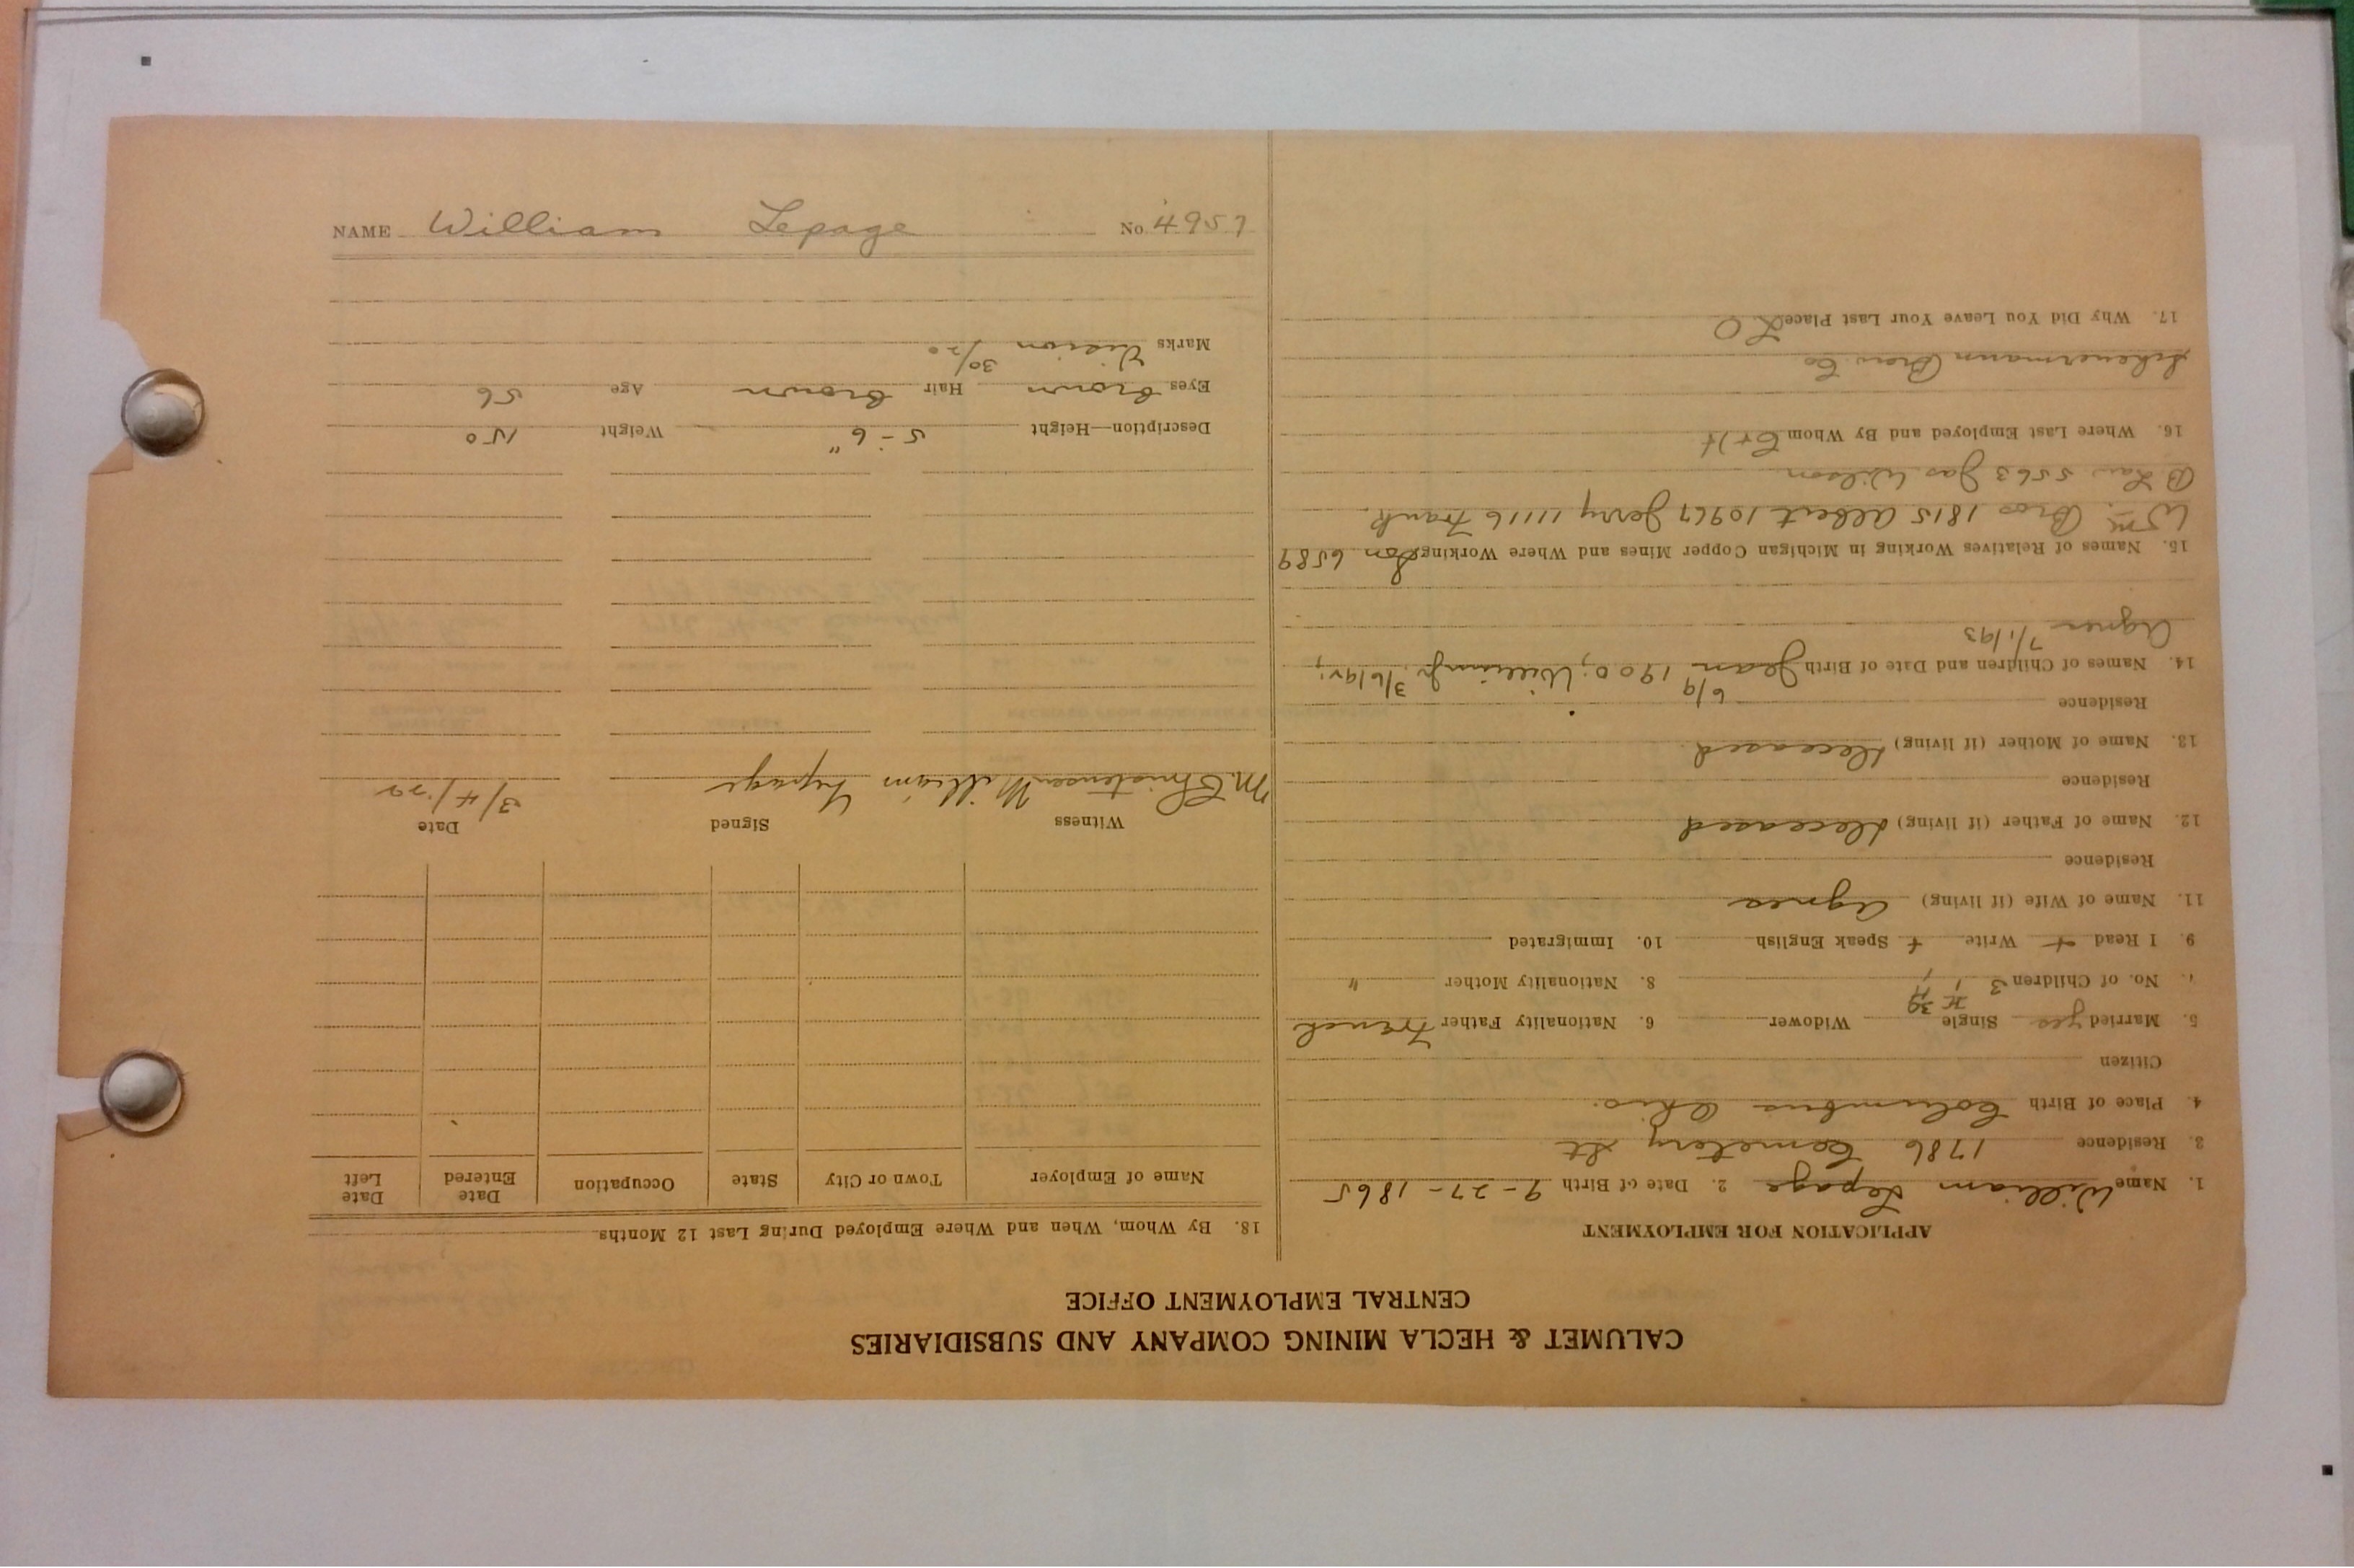 CALUMET & HECLA MINING COMPANY AND SUBSIDIARIES
CENTRAL EMPLOYMENT OFFICE
APPLICATION FOR EMPLOYMENT
1. Name William Lepage 2. Date of Birth 9-27-1865
3. Residence 1786 Cemetery St
4. Place of Birth Columbus Ohio.
Citizen
5. Married yes Single Widower 6. Nationality Father French
No. of Children 3 8. Nationality Mother "
9. I Read + Write + Speak English 10. Immigrated
11. Name of Wife (if living) Agnes
Residence
12. Name of Father (if living) Deceased
Residence
13. Name of Mother (if living) Deceased
Residence
14. Names of Children and Date of Birth Jean 6/9 1900; William Jr.
Agnes 7/1/93
15. Names of Relatives Working in Michigan Copper Mines and Where Working Son 6589
Wm. Bros 1815 Albert 10967 Jerry 11116 Frank.
B Law 5563 Jas Wilson
16. Where Last Employed and By Whom C+H
Scheuermann Brew Co
17. Why Did You Leave Your Last Place LO
18. By Whom, When and Where Employed During Last 12 Months
Name of Employer Town or City State Occupation Date Entered Date Left
Witness Signed Date
M. Christensen William Lepage 3/4/22
Description—Height 5-6" Weight 150
Eyes Brown Hair Brown Age 56
Marks Vision 30/20
NAME William Lepage No. 4957